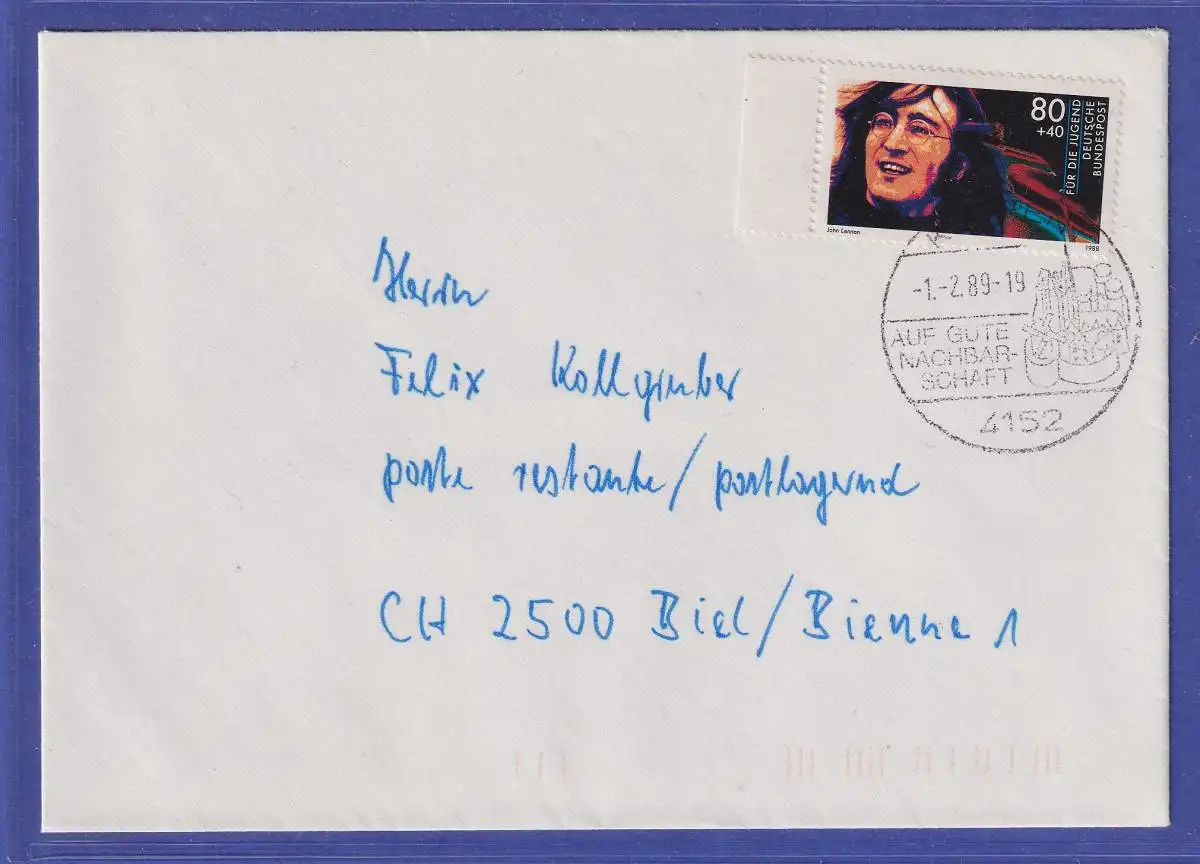 80
+40
FÜR DIE JUGEND
DEUTSCHE
BUNDESPOST
John Lennon
1988
-1.-2.89-19
AUF GUTE
NACHBAR-
SCHAFT
4152
Herrn
Felix Kollgruber
poste restante/postlagernd
CH 2500 Biel/Bienne 1